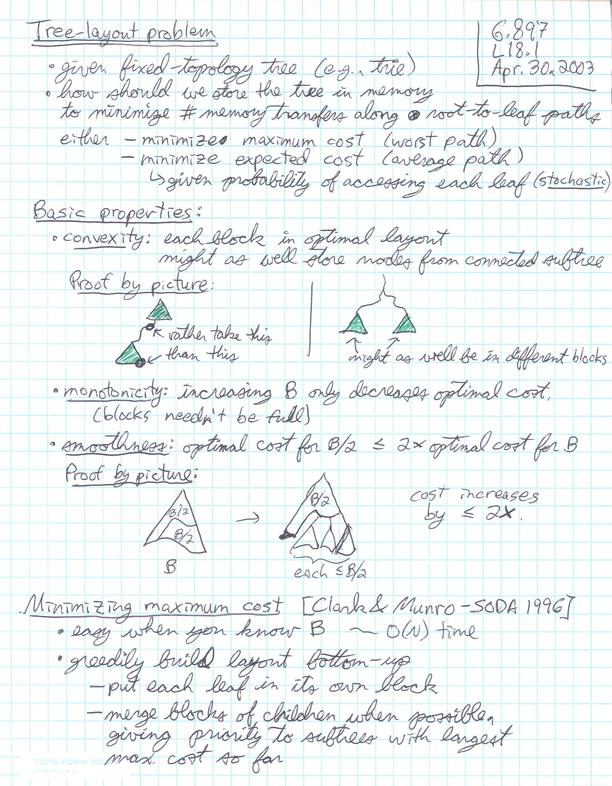 Tree-layout problem
6.897
L18.1
Apr. 30, 2003
• given fixed-topology tree (e.g., trie)
• how should we store the tree in memory
to minimize # memory transfers along root-to-leaf paths
either – minimize maximum cost (worst path)
– minimize expected cost (average path)
↳ given probability of accessing each leaf (stochastic)
Basic properties:
• convexity: each block in optimal layout
might as well store nodes from connected subtree
Proof by picture:
rather take this
than this
might as well be in different blocks
• monotonicity: increasing B only decreases optimal cost.
(blocks needn't be full)
• smoothness: optimal cost for B/2 ≤ 2x optimal cost for B
Proof by picture:
B/2
B/2
B
→
B/2
each ≤ B/2
cost increases
by ≤ 2x.
Minimizing maximum cost [Clark & Munro – SODA 1996]
• easy when you know B ~ O(N) time
• greedily build layout bottom-up
– put each leaf in its own block
– merge blocks of children when possible,
giving priority to subtrees with largest
max. cost so far